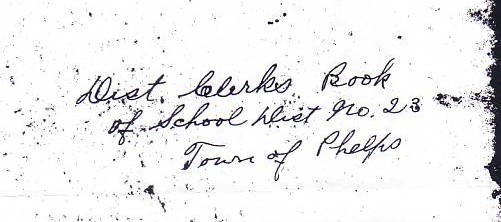 Dist. Clerks Book
of School Dist No. 23
Town of Phelps